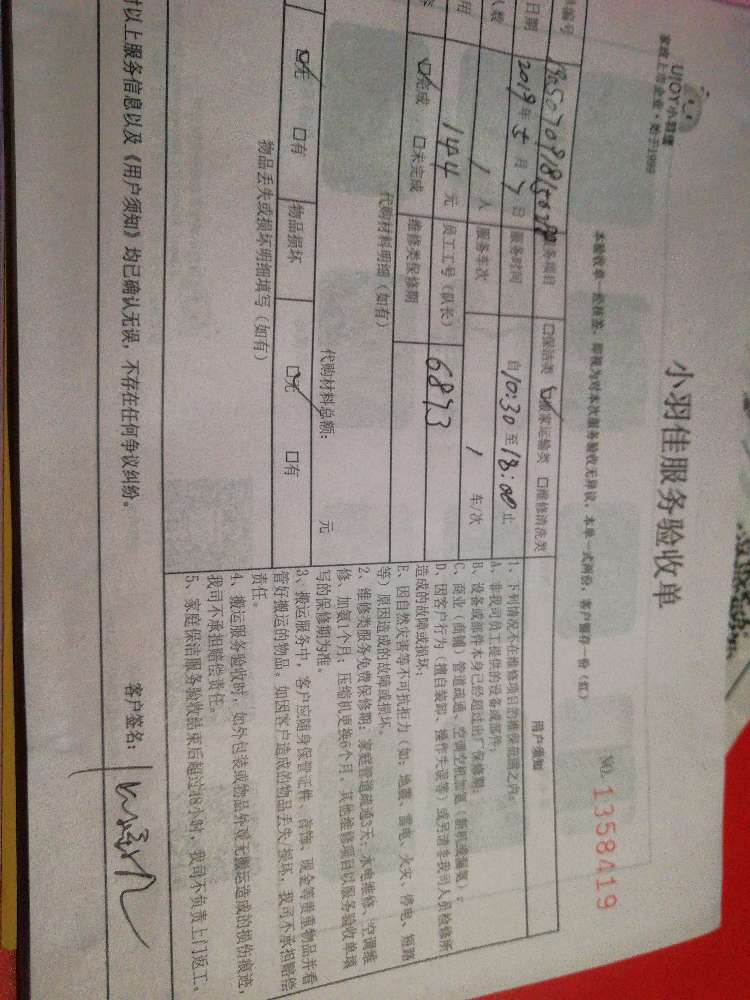 UJOY小羽佳
家政上市企业·始于1999
小羽佳服务验收单
NO. 1358419
本验收单一经核签，即视为对本次服务验收无异议，本单一式两份，客户留存一份（红）
编号
务项目 □保洁类 ☑搬家运输类 □维修清洗类
日期 2019年5月7日 服务时间 自10:30至18:00止
人数 1人 服务车次 1车/次
用 144元 员工工号（队长） 6873
☑完成 □未完成 维修类保修期
代购材料明细（如有）
代购材料总额： 元
☑无 □有 物品损坏 ☑无 □有
物品丢失或损坏明细填写（如有）
用户须知
1、下列情况不在维修项目的维保范围之内。
A、非我司员工提供的设备或部件；
B、设备或部件本身已经超过出厂保修期；
C、商业（商铺）管道疏通、空调空机加氨（新机或漏氨）；
D、因客户行为（擅自装卸、操作失误等）或另请非我司人员检修所
造成的故障或损坏；
E、因自然灾害等不可抗拒力（如：地震、雷电、火灾、停电、短路
等）原因造成的故障或损坏。
2、维修类服务免费保修期：家庭管道疏通3天；水电维修、空调维
修、加氨1个月；压缩机更换6个月，其他维修项目以服务验收单填
写的保修期为准。
3、搬运服务中，客户应随身保管证件、首饰、现金等贵重物品并看
管好搬运的物品。如因客户造成的物品丢失/损坏，我司不承担赔偿
责任。
4、搬运服务验收时，如外包装或物品外观无搬运造成的损伤痕迹，
我司不承担赔偿责任。
5、家庭保洁服务验收结束后超过48小时，我司不负责上门返工。
对以上服务信息以及《用户须知》均已确认无误，不存在任何争议纠纷。
客户签名：